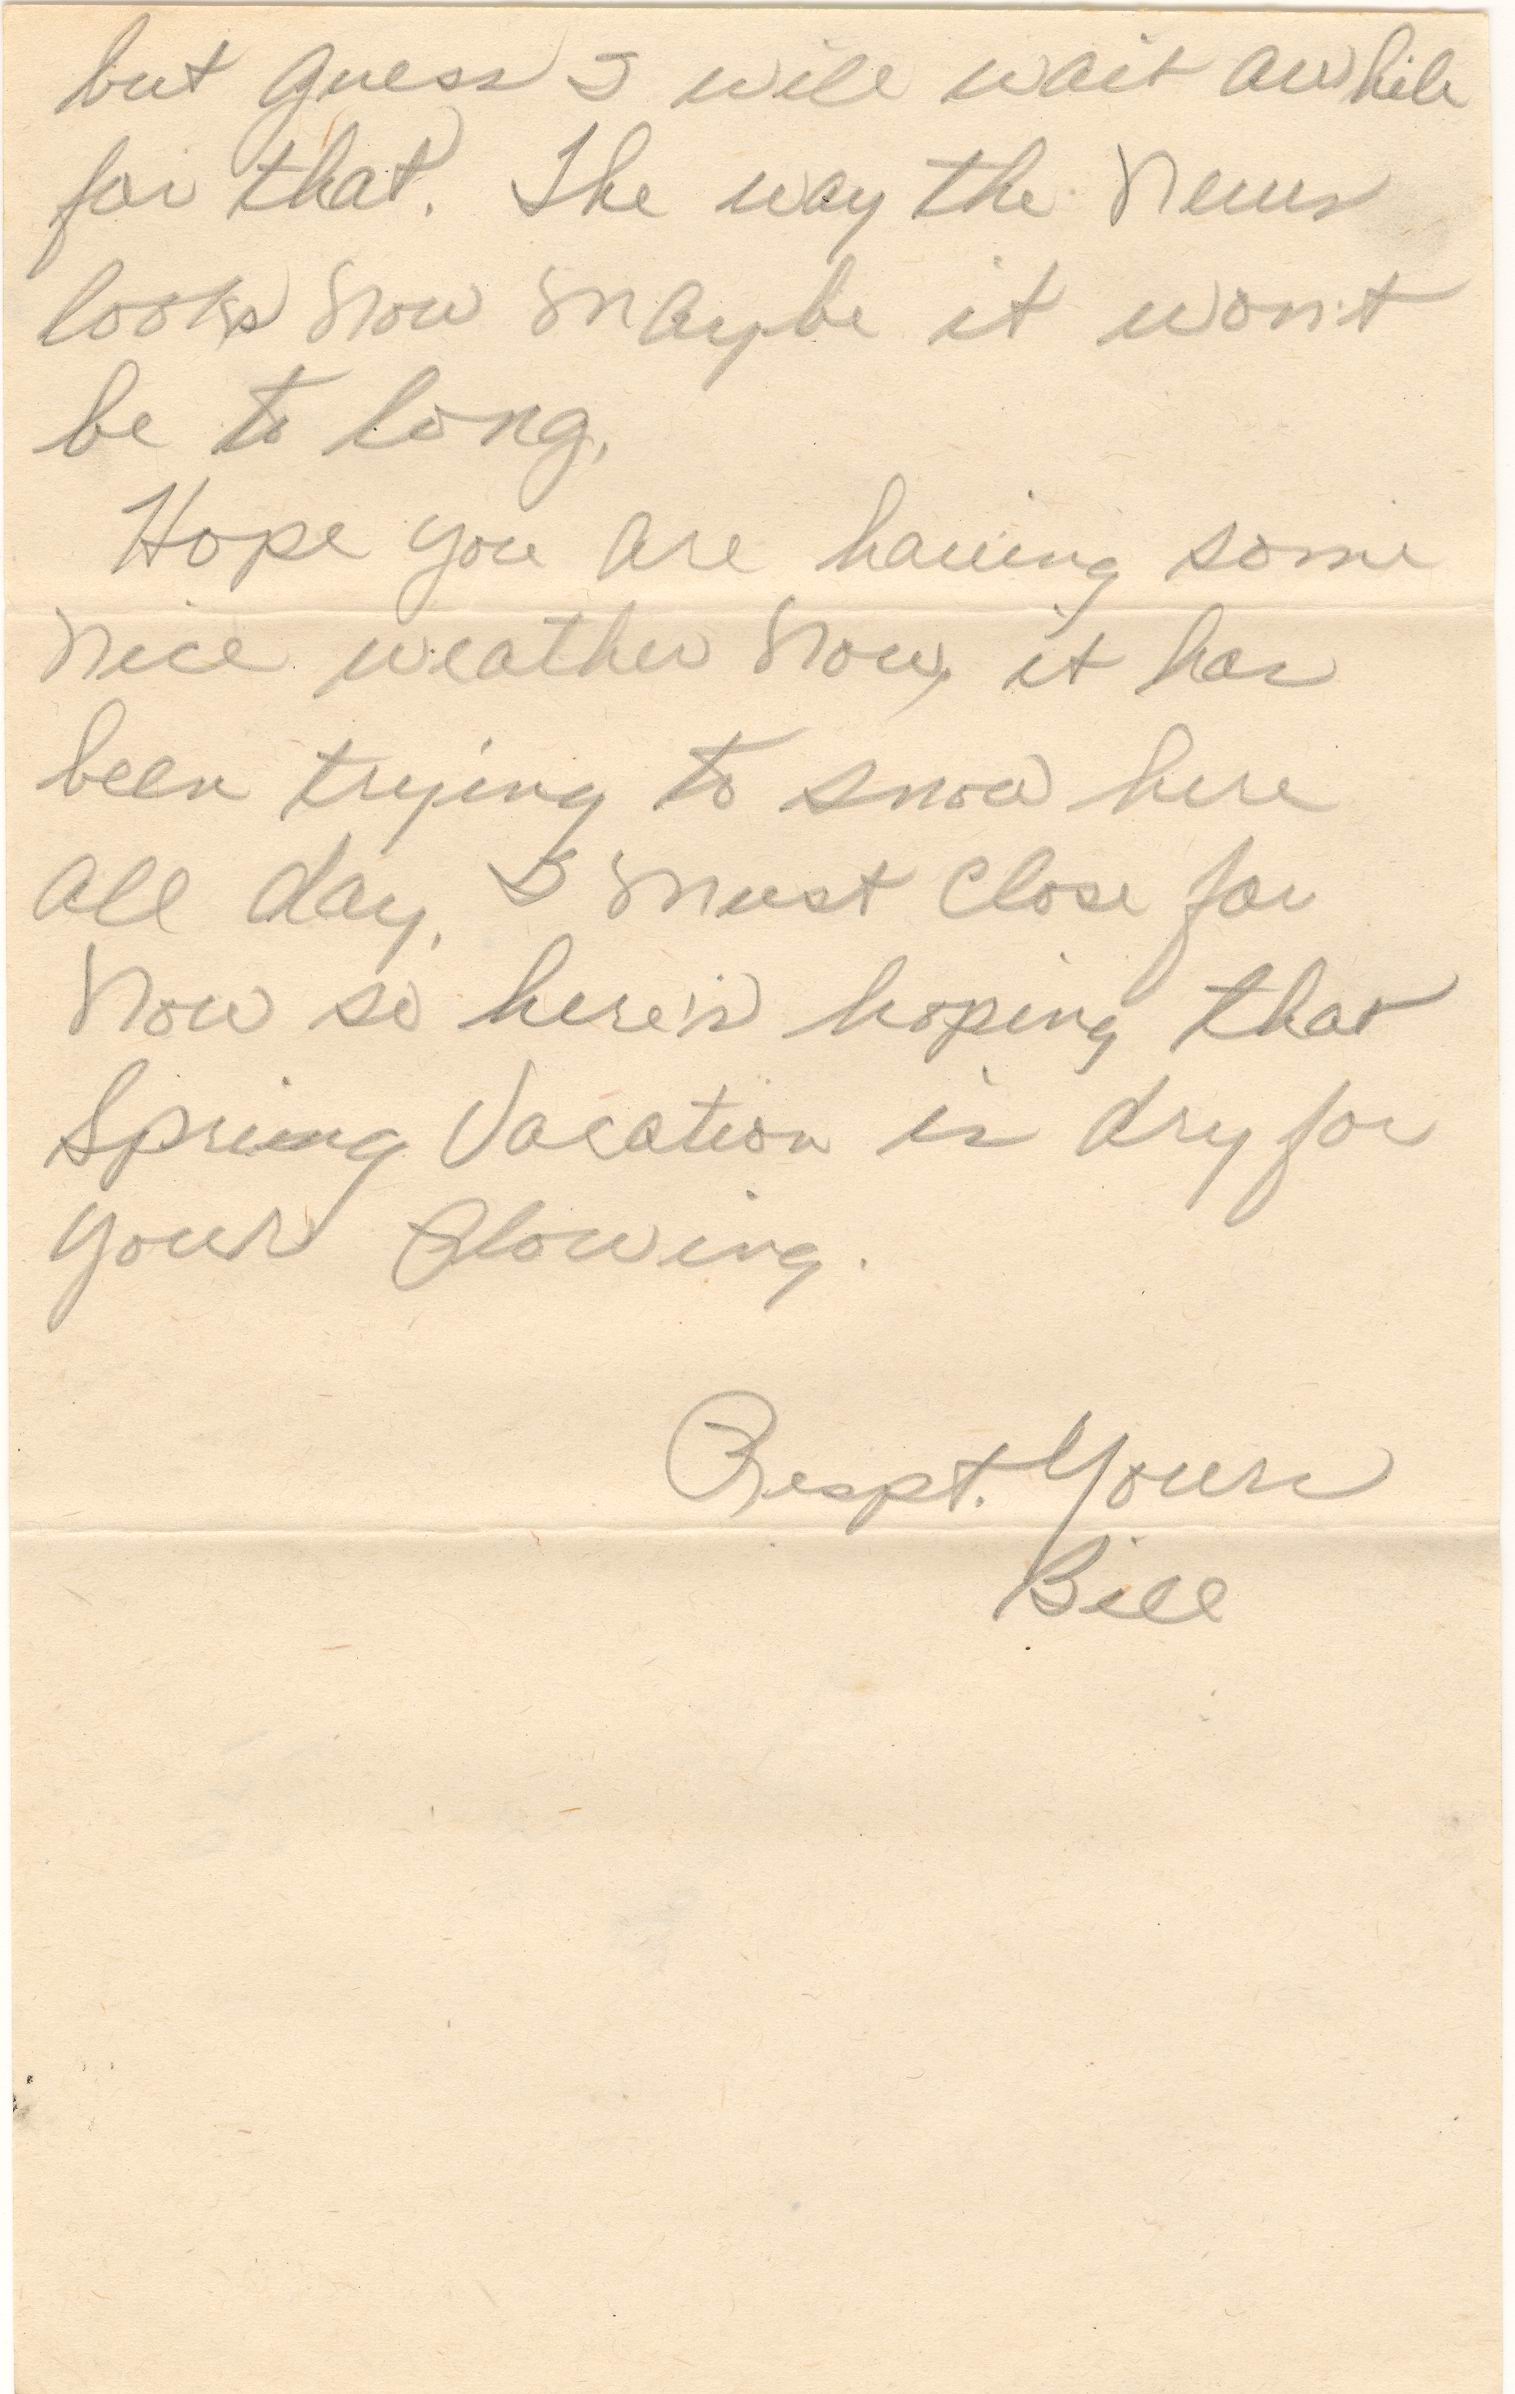 but guess I will wait awhile
for that. The way the News
looks Now Maybe it won't
be to long.
Hope you are having some
Nice weather Now, it has
been trying to snow here
all day. I Must Close for
Now so here's hoping that
Spring Vacation is dry for
your Plowing.
Respt. Yours
Bill